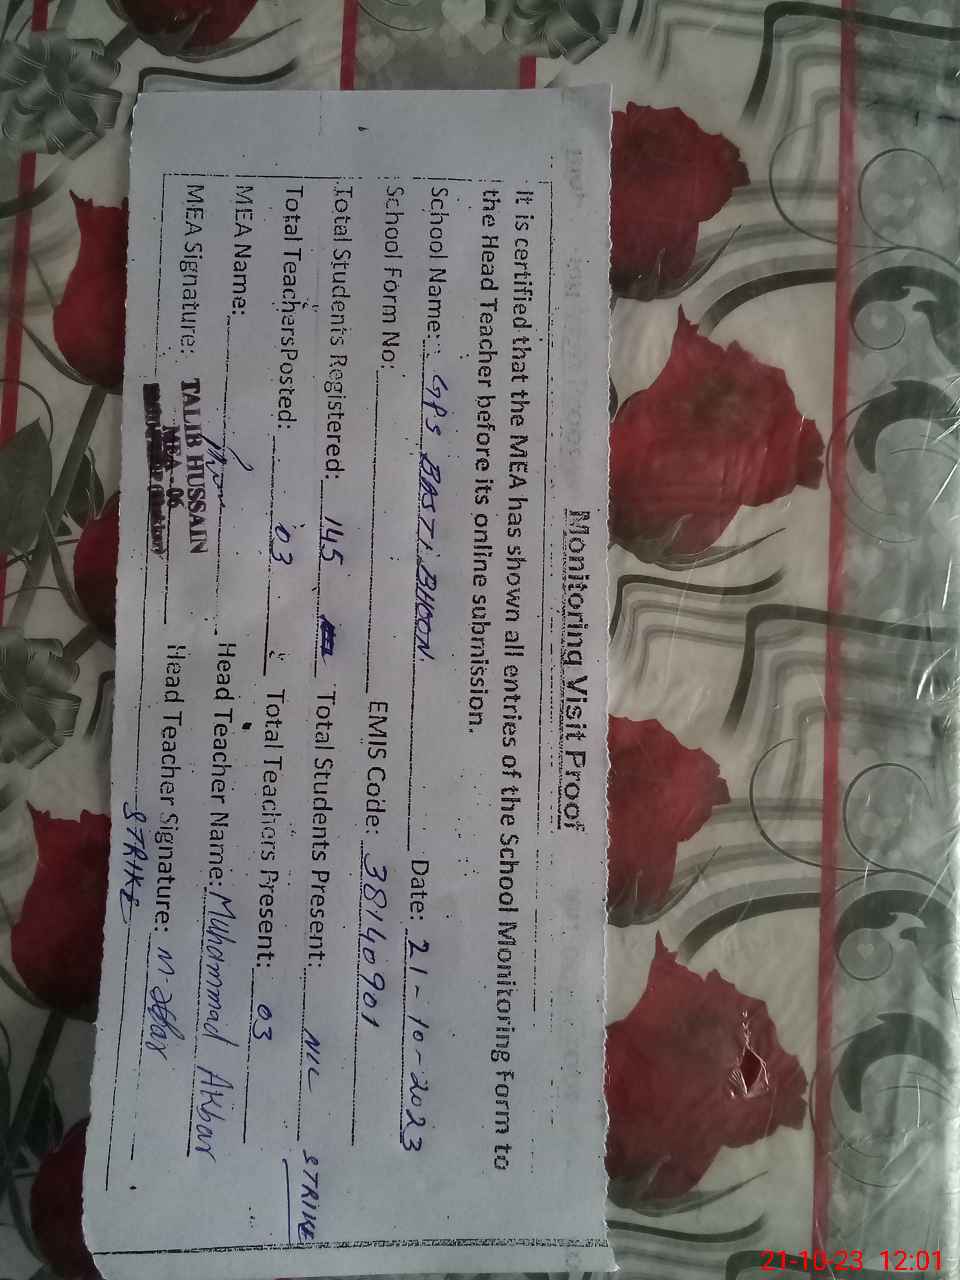 Monitoring Visit Proof
It is certified that the MEA has shown all entries of the School Monitoring Form to
the Head Teacher before its online submission.
School Name: GPS BASTI BHOON. Date: 21-10-2023
School Form No: EMIS Code: 38140901
Total Students Registered: 145 Total Students Present: NIL STRIKE
Total Teachers Posted: 03 Total Teachers Present: 03
MEA Name: Head Teacher Name: Muhammad Akbar
MEA Signature: TALIB HUSSAIN Head Teacher Signature: M. Akbar
MEA - 06
STRIKE
21-10-23 12:01